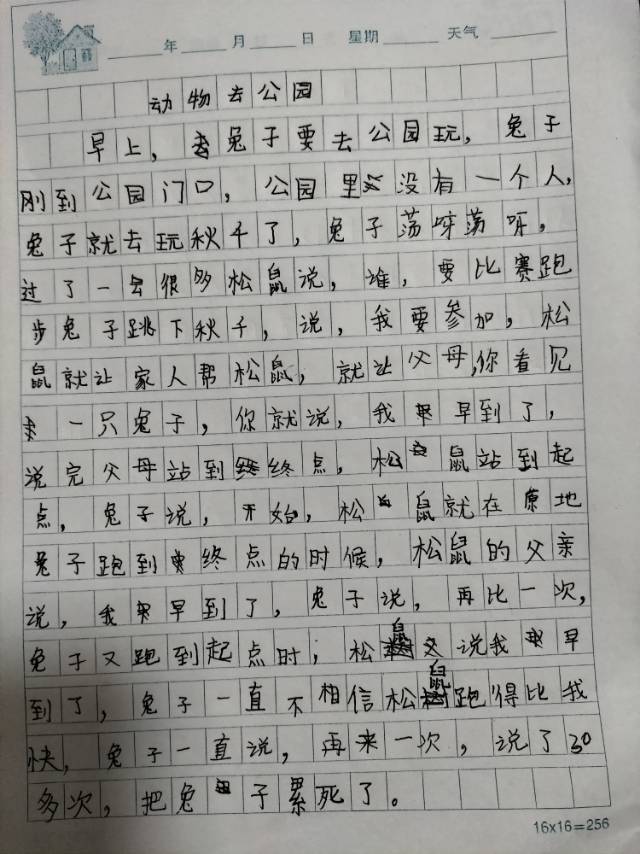 年 月 日 星期 天气
动物去公园
早上，兔子要去公园玩，兔子
刚到公园门口，公园里没有一个人，
兔子就去玩秋千了，兔子荡呀荡呀。
过了一会很多松鼠说，谁，要比赛跑
步兔子跳下秋千，说，我要参加，松
鼠就让家人帮松鼠，就让父母，你看见
一只兔子，你就说，我早到了，
说完父母站到终点，松鼠站到起
点，兔子说，开始，松鼠就在原地
兔子跑到终点的时候，松鼠的父亲
说，我早到了，兔子说，再比一次，
兔子又跑到起点时，松鼠又说我早
到了，兔子一直不相信松鼠跑得比我
快，兔子一直说，再来一次，说了30
多次，把兔子累死了。
16x16=256